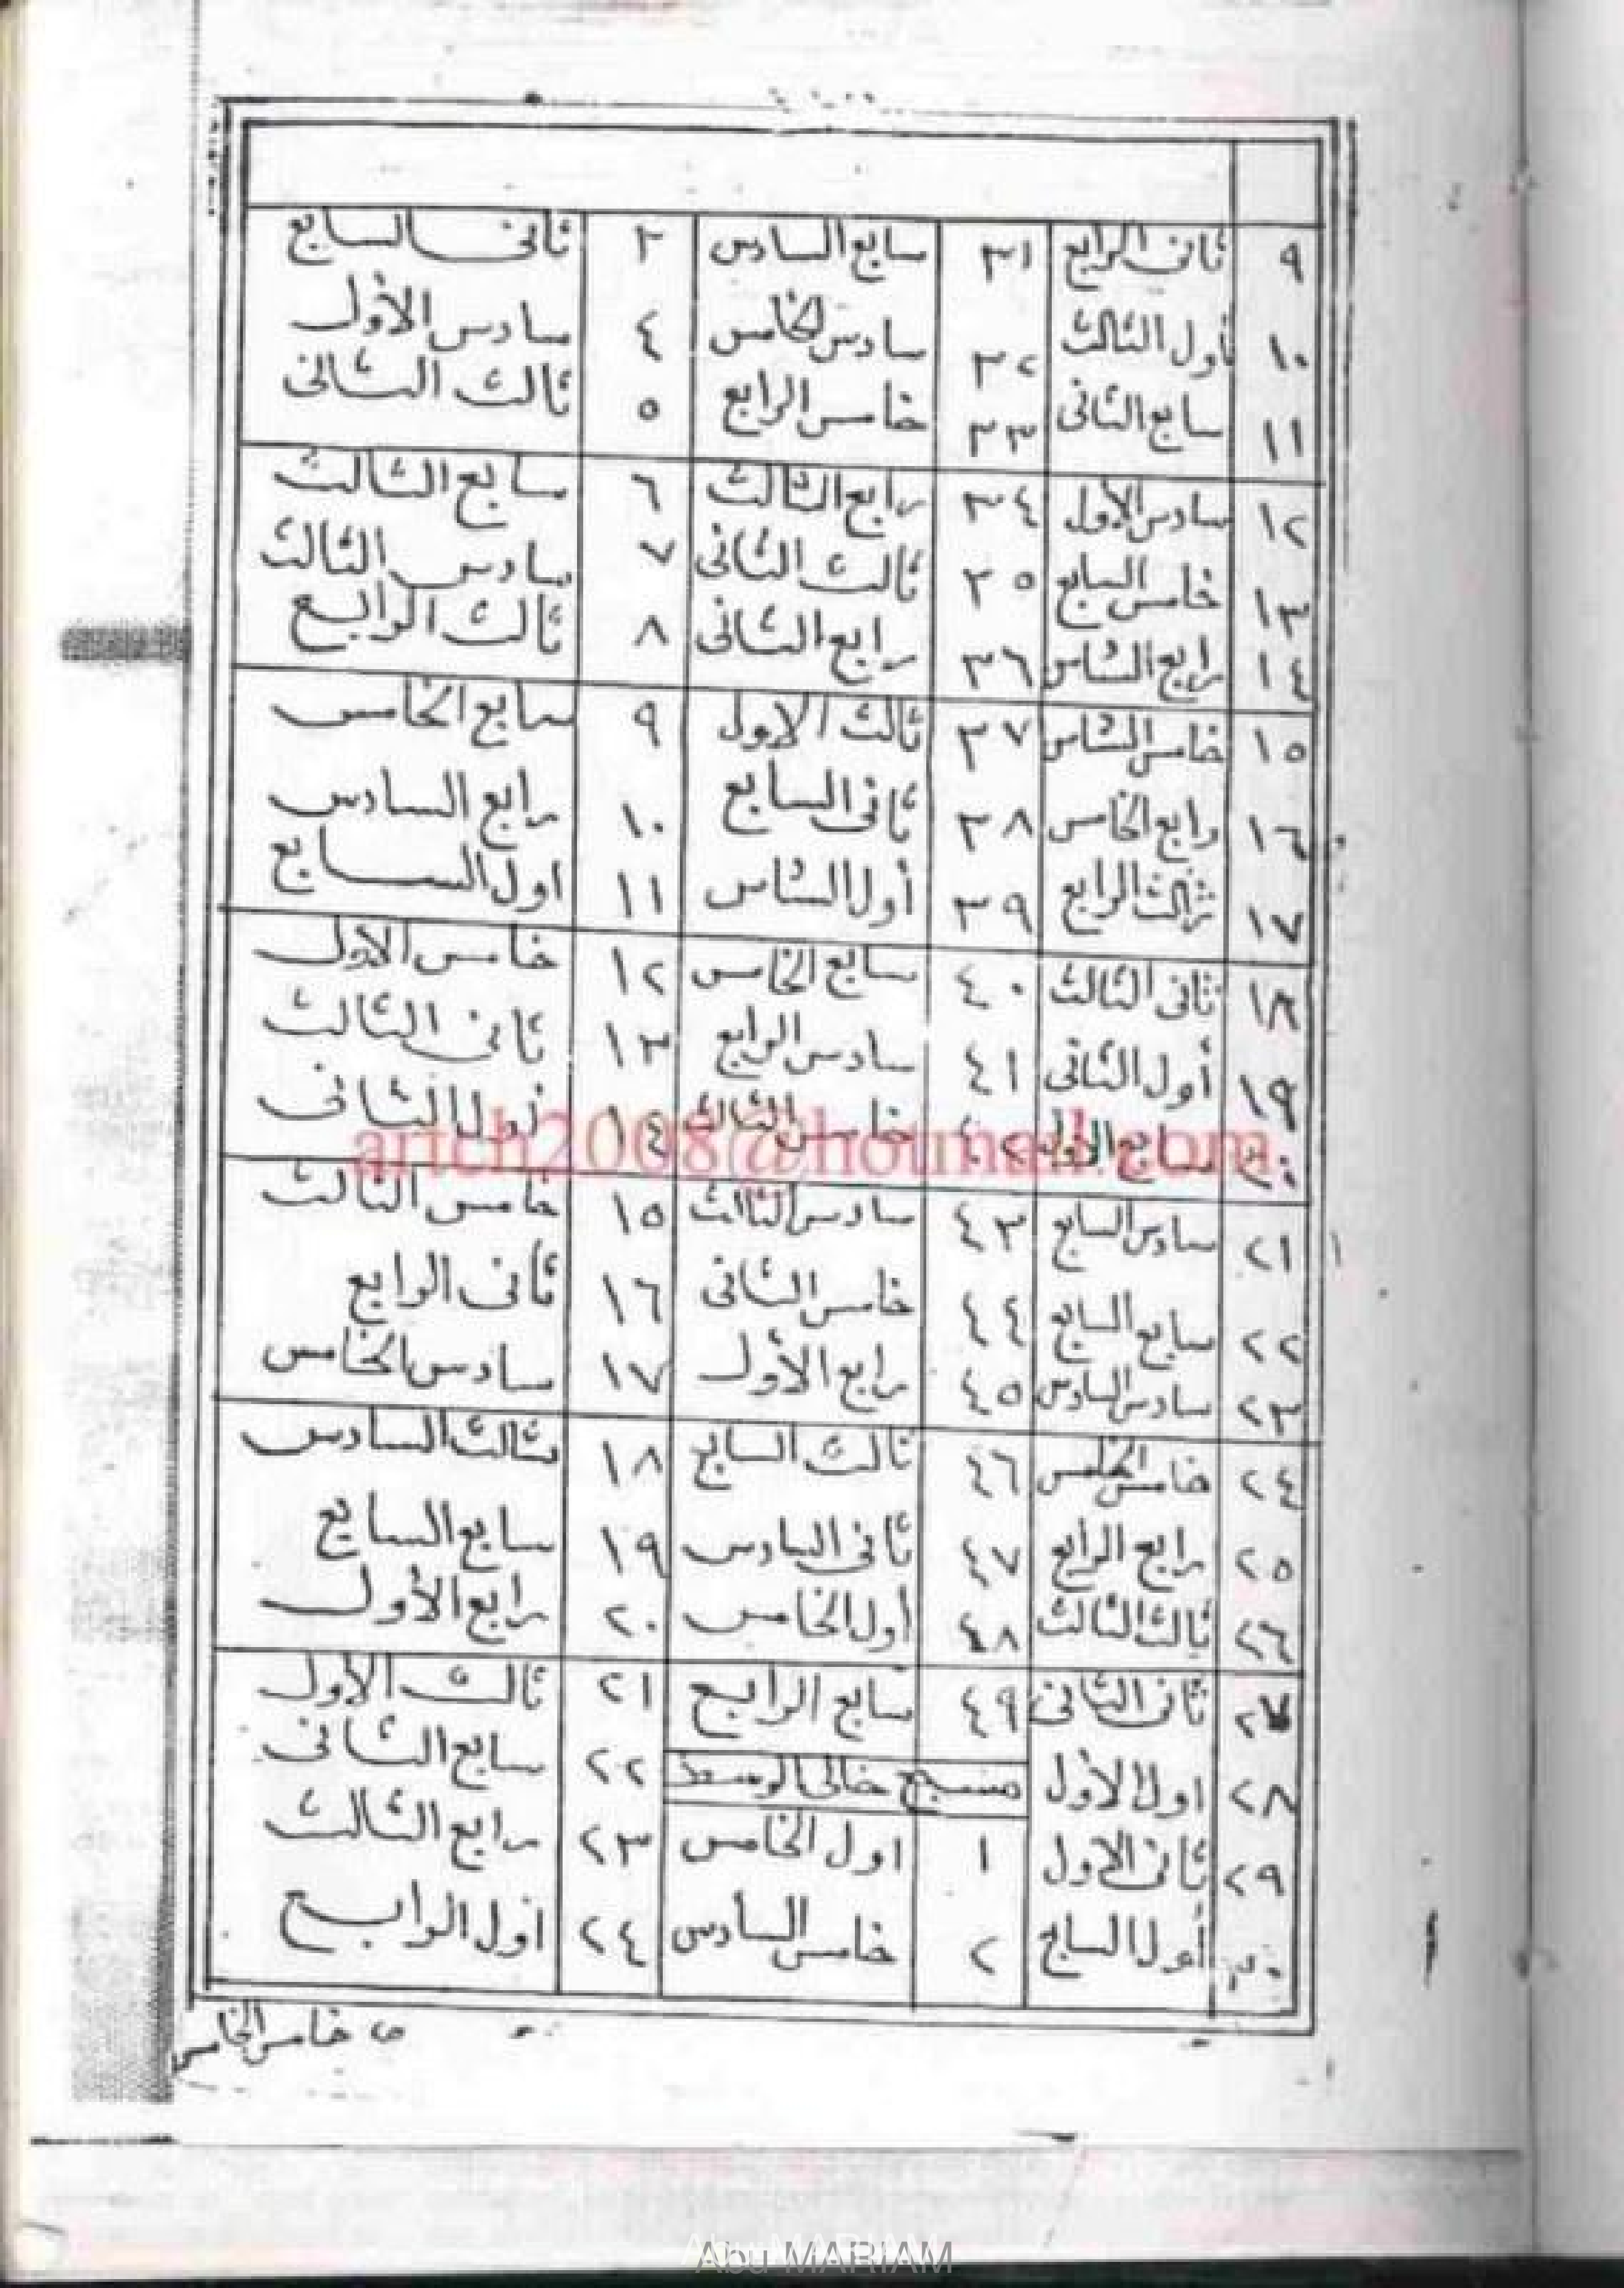 ٩ ثانى الرابع ٣١ سابع السادس ٣ ثانى السابع
١٠ أول الثالث ٣٢ سادس الخامس ٤ سادس الأول
١١ سابع الثانى ٣٣ خامس الرابع ٥ ثالث الثانى
١٢ سادس الأول ٣٤ رابع الثالث ٦ سابع الثالث
١٣ خامس السابع ٣٥ ثالث الثانى ٧ سادس الثالث
١٤ رابع السادس ٣٦ رابع الثانى ٨ ثالث الرابع
١٥ خامس السادس ٣٧ ثالث الاول ٩ سابع الخامس
١٦ رابع الخامس ٣٨ ثانى السابع ١٠ رابع السادس
١٧ ثالث الرابع ٣٩ أول السادس ١١ اول السابع
١٨ ثانى الثالث ٤٠ سابع الخامس ١٢ خامس الاول
١٩ أول الثانى ٤١ سادس الرابع ١٣ ثانى الثالث
٢٠ سابع الأول ٤٢ خامس الثالث ١٤ أول الثانى
artch2008@hotmail.com
٢١ سادس السابع ٤٣ سادس الثالث ١٥ خامس الثالث
٢٢ سابع السابع ٤٤ خامس الثانى ١٦ ثانى الرابع
٢٣ سادس السادس ٤٥ رابع الأول ١٧ سادس الخامس
٢٤ خامس الخامس ٤٦ ثالث السابع ١٨ ثالث السادس
٢٥ رابع الرابع ٤٧ ثانى السادس ١٩ سابع السابع
٢٦ ثالث الثالث ٤٨ أول الخامس ٢٠ رابع الأول
٢٧ ثانى الثانى ٤٩ سابع الرابع ٢١ ثالث الاول
٢٨ اول الأول مسبع خالى الوسط ٢٢ سابع الثانى
٢٩ ثانى الاول ١ اول الخامس ٢٣ رابع الثالث
٣٠ أول السابع ٢ خامس السادس ٢٤ أول الرابع
خامس الخامس
Abu MARIAM